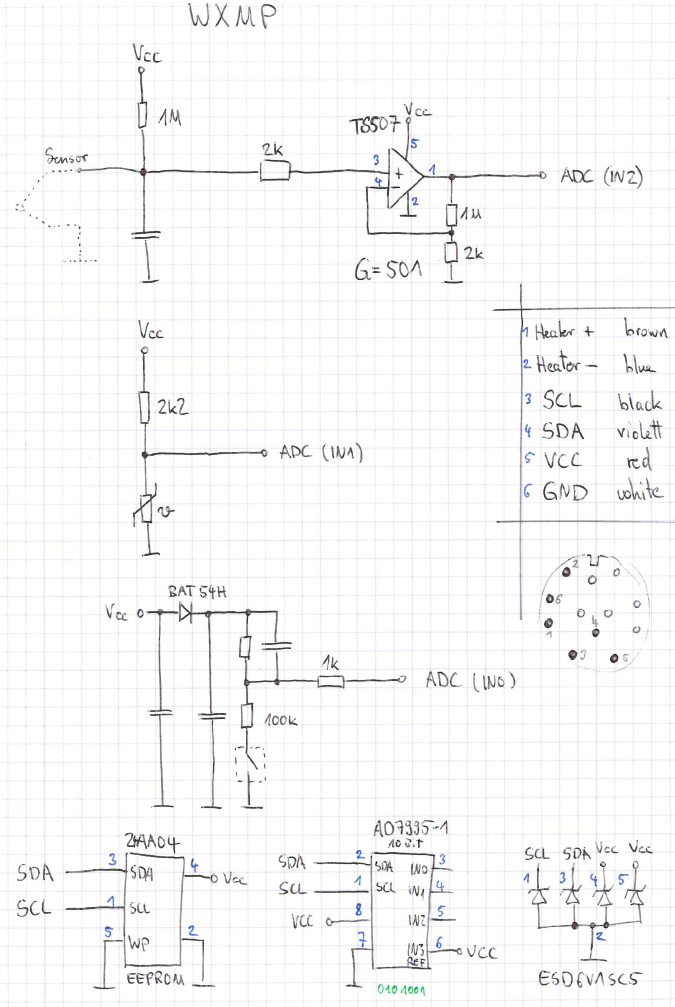 WXMP
Vcc
1M
Sensor
2k
TS507
Vcc
5
3
+
4
−
1
2
ADC (IN2)
1M
2k
G=501
Vcc
2k2
ADC (IN1)
ϑ
1 Heater + brown
2 Heater − blue
3 SCL black
4 SDA violett
5 VCC red
6 GND white
2
6
1
4
3
5
BAT54H
Vcc
1k
ADC (IN0)
100k
24AA04
SDA 3 SDA 4 Vcc
SCL 1 SCL
5 WP 2
EEPROM
AD7995-1
10 Bit
SDA 2 SDA IN0 3
SCL 1 SCL IN1 4
VCC 8 IN2 5
7 IN3 6 VCC
REF
0101001
SCL SDA Vcc Vcc
1 3 4 5
2
ESD6V1SC5